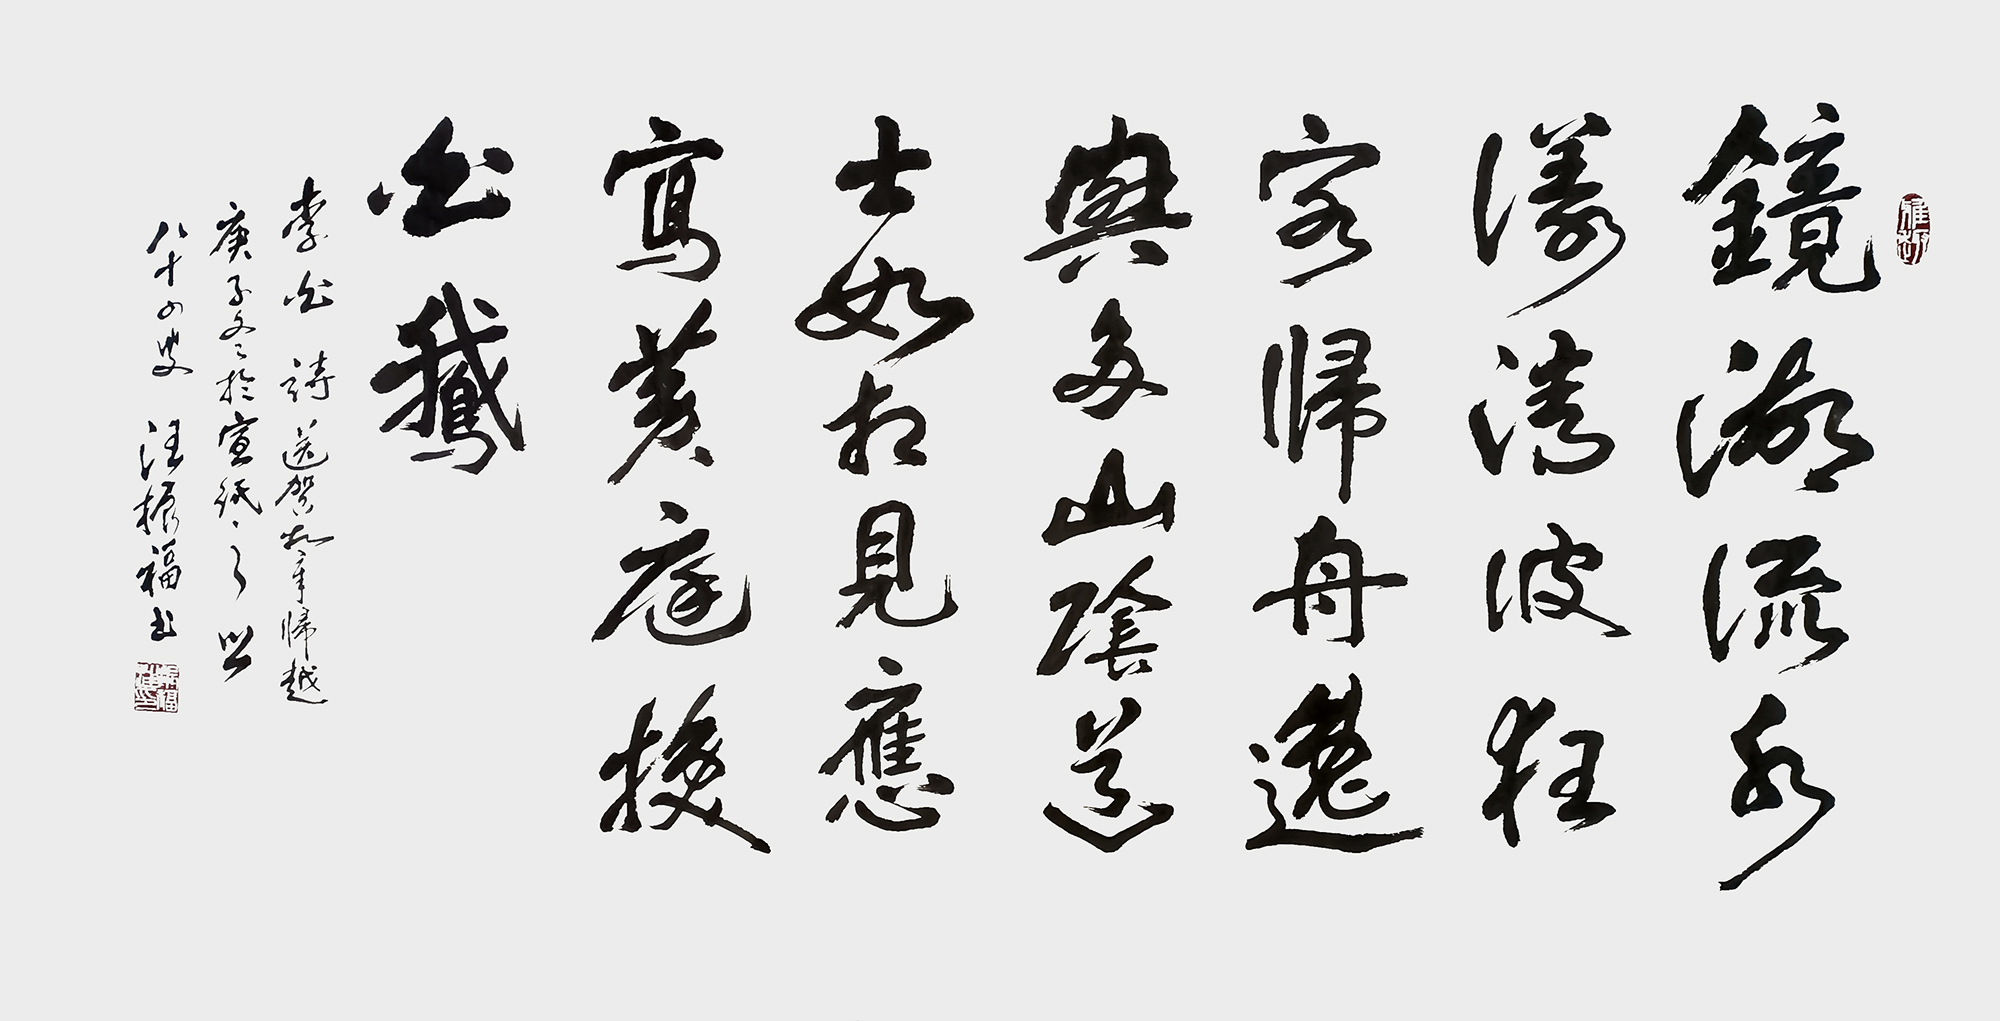 鏡湖流水
漾清波狂
客歸舟逸
興多山陰道
士如相見應
寫黃庭換
白鵝
李白詩送賀知章歸越
庚子冬於宣紙之鄉
八十四叟 汪振福书